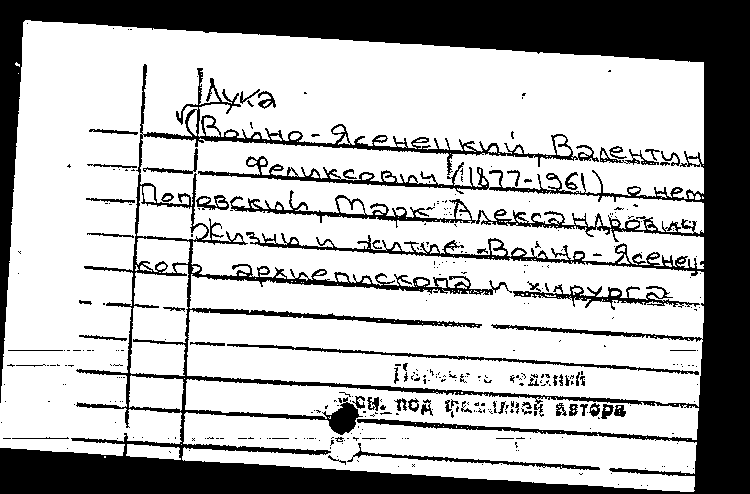 Лука
(Войно-Ясенецкий, Валентин
Феликсович) (1877-1961), о нем
Поповский, Марк Александрович.
Жизнь и житие Войно-Ясенец-
кого архиепископа и хирурга
Перечень изданий
см. под фамилией автора